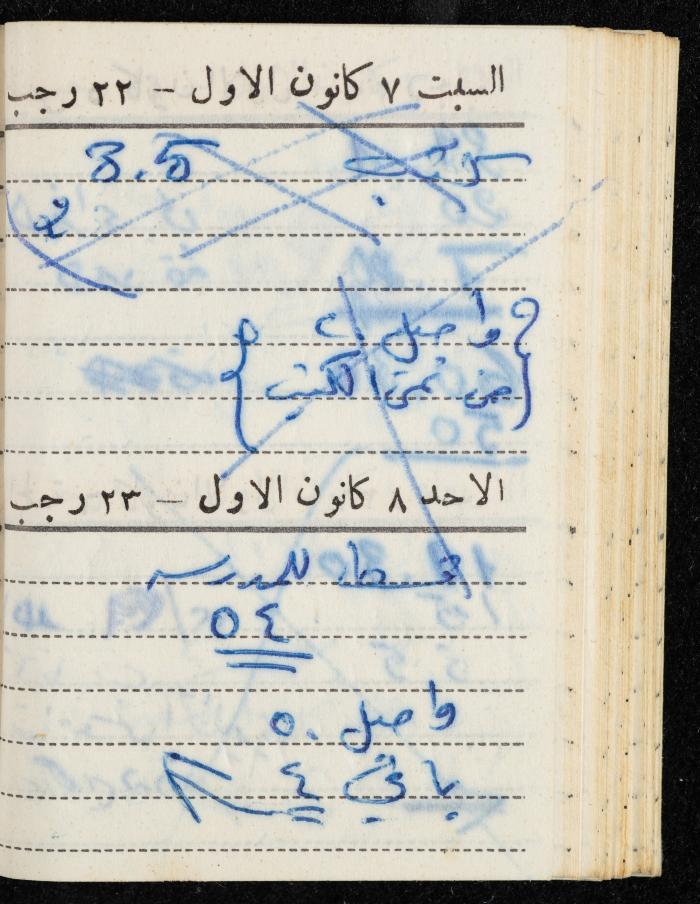 السبت ٧ كانون الاول - ٢٢ رجب
3.5
واصل ٢٠
من ثمن الكتب
الاحد ٨ كانون الاول - ٢٣ رجب
قسط للمدرسه
٥٤
واصل ٥٠
باقي ٤